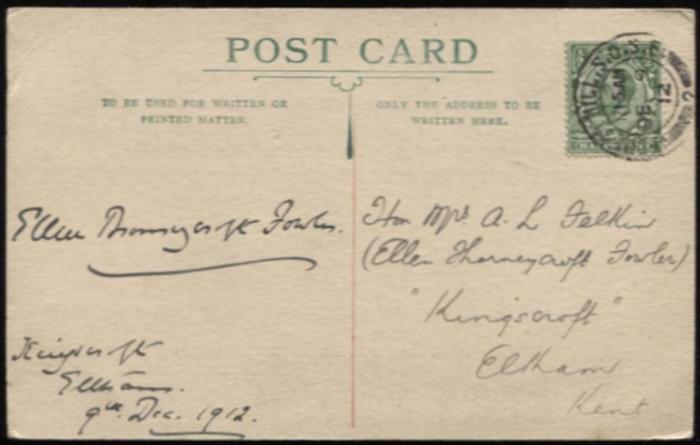 POST CARD
TO BE USED FOR WRITTEN OR
PRINTED MATTER.
ONLY THE ADDRESS TO BE
WRITTEN HERE.
Ellen Thorneycroft Fowler.
Kingscroft
Eltham.
9th Dec. 1912.
Hon Mrs. A. L Felkin
(Ellen Thorneycroft Fowler)
"Kingscroft"
Eltham
Kent
HALFPENNY